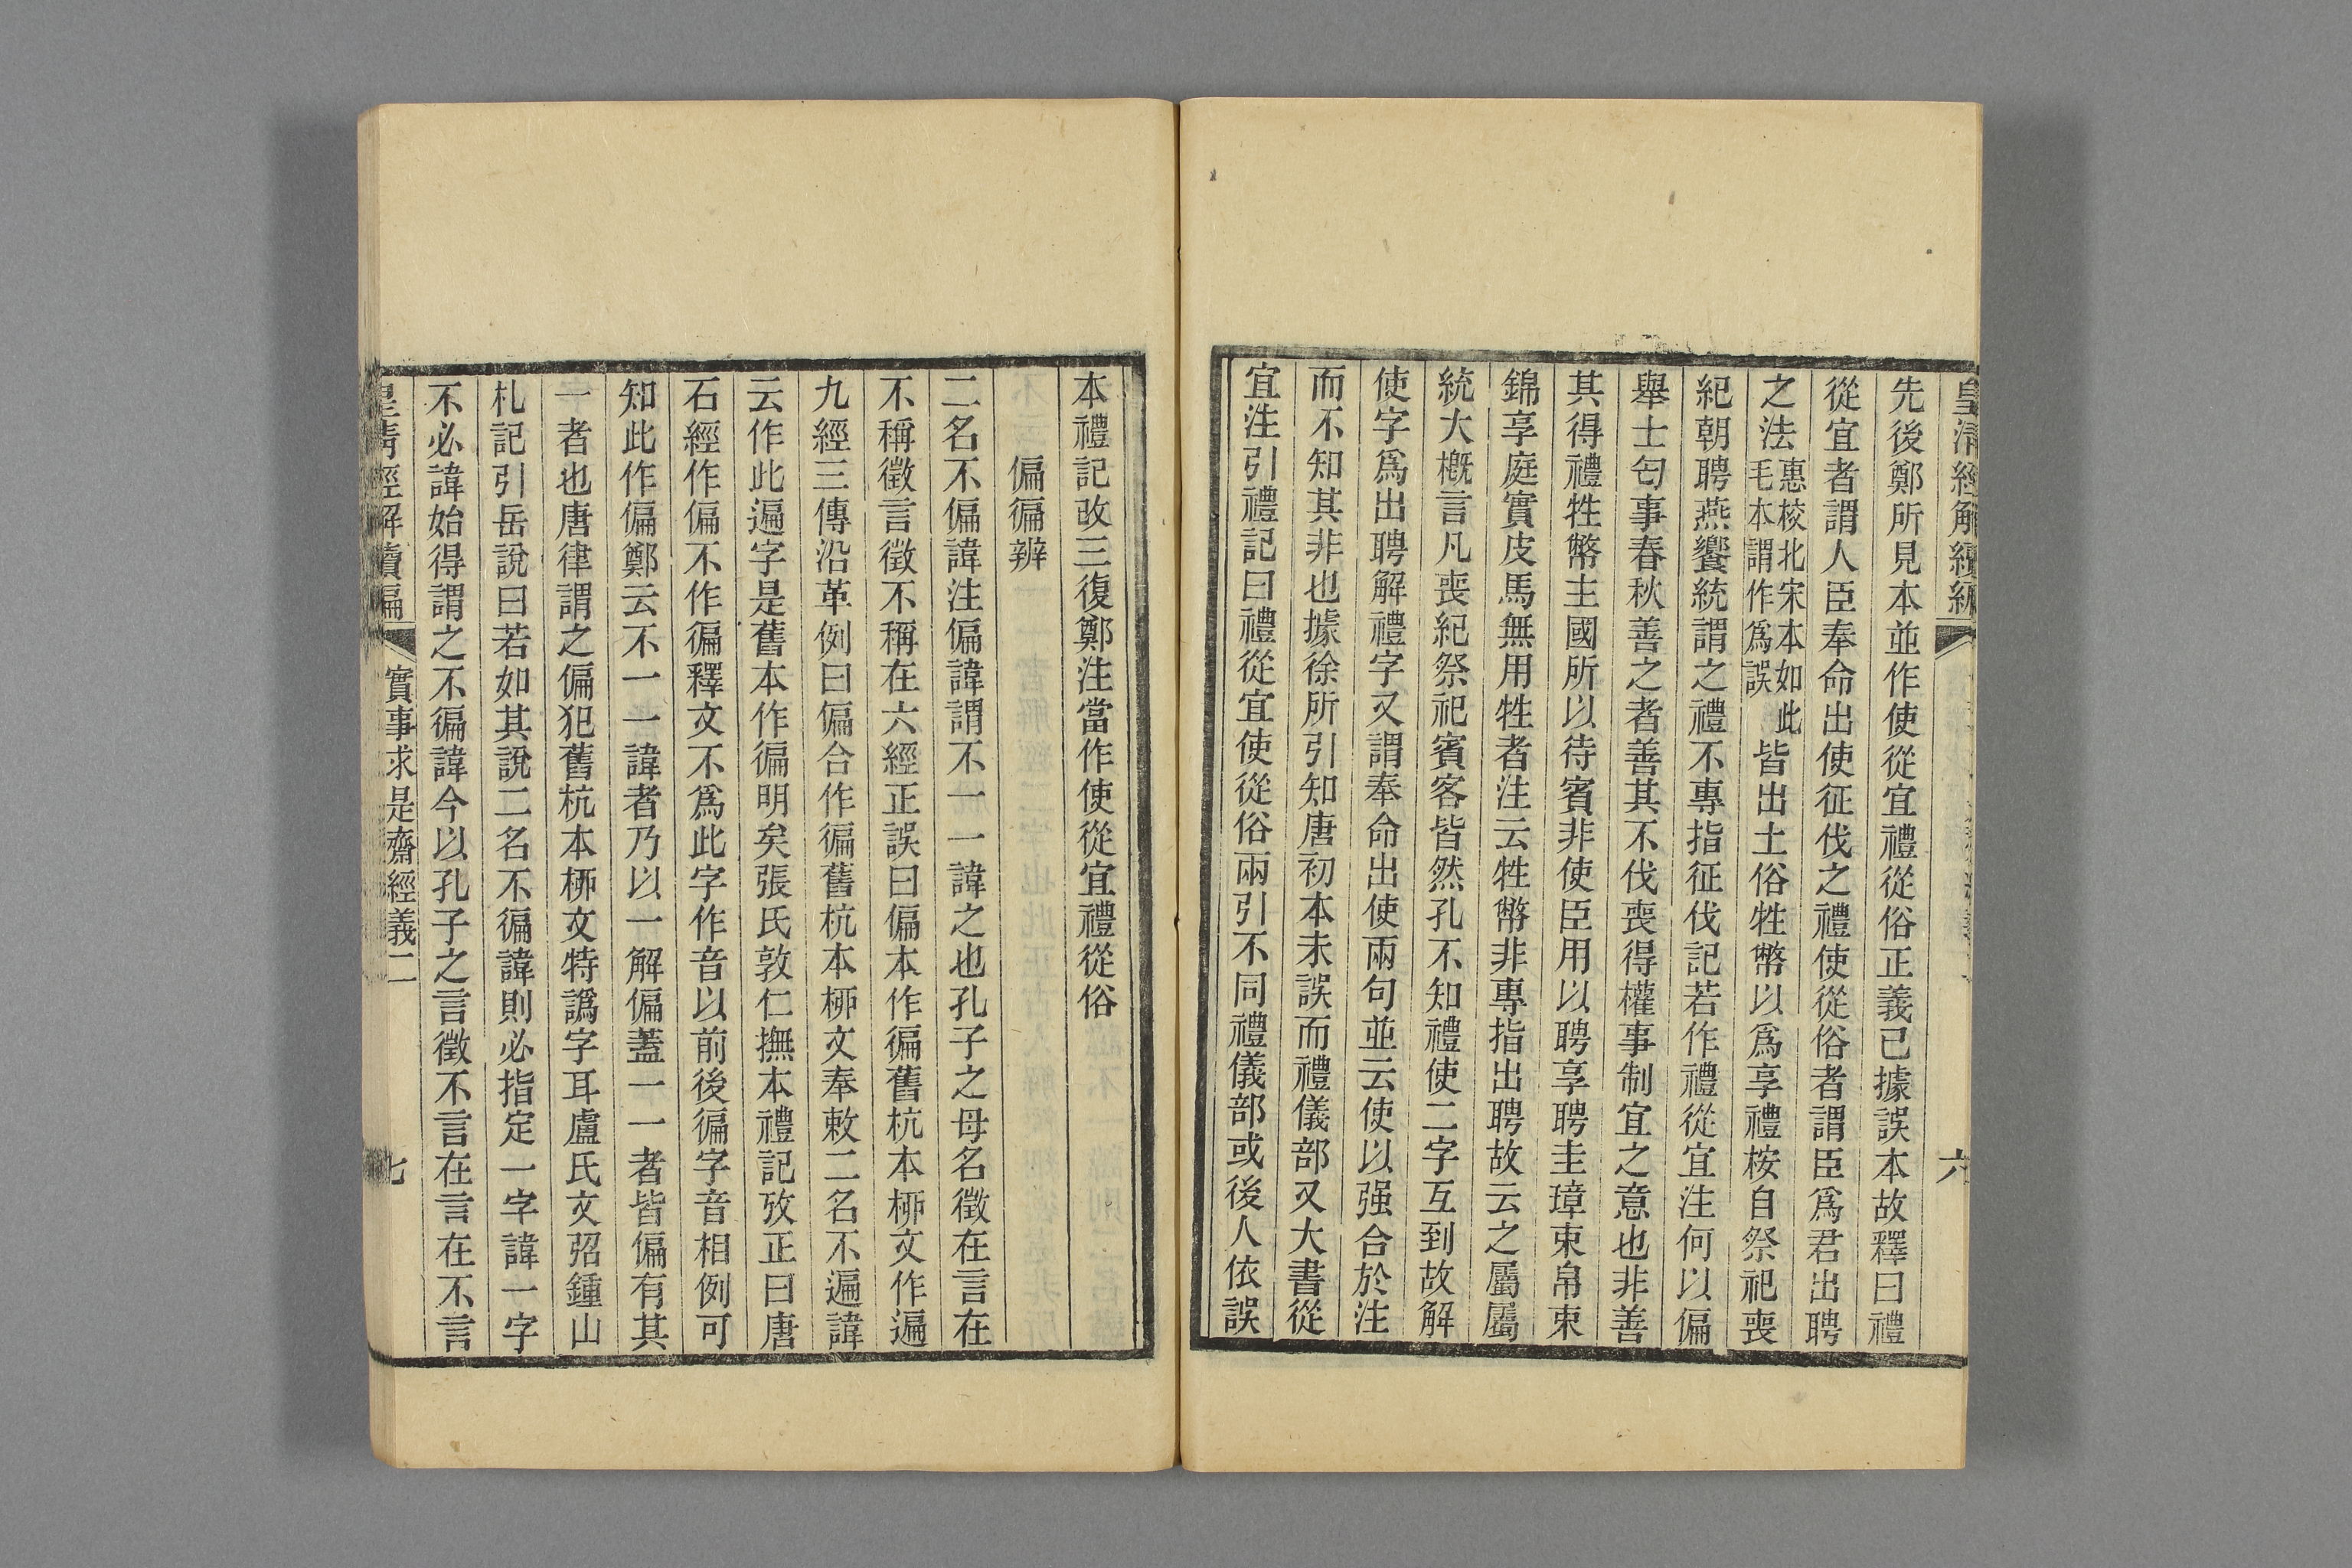 皇清經解續編
六
先後鄭所見本並作使從宜禮從俗正義已據誤本故釋曰禮
從宜者謂人臣奉命出使征伐之禮使從俗者謂臣爲君出聘
之法惠校北宋本如此毛本謂作爲誤皆出土俗牲幣以爲享禮桉自祭祀喪
紀朝聘燕饗統謂之禮不專指征伐記若作禮從宜注何以偏
舉士匄事春秋善之者善其不伐喪得權事制宜之意也非善
其得禮牲幣主國所以待賓非使臣用以聘享聘圭璋束帛束
錦享庭實皮馬無用牲者注云牲幣非專指出聘故云之屬屬
統大槪言凡喪紀祭祀賓客皆然孔不知禮使二字互到故解
使字爲出聘解禮字又謂奉命出使兩句並云使以强合於注
而不知其非也據徐所引知唐初本未誤而禮儀部又大書從
宜注引禮記曰禮從宜使從俗兩引不同禮儀部或後人依誤
本禮記改三復鄭注當作使從宜禮從俗
偏徧辨
二名不偏諱注偏諱謂不一一諱之也孔子之母名徵在言在
不稱徵言徵不稱在六經正誤曰偏本作徧舊杭本桺文作遍
九經三傳沿革例曰偏合作徧舊杭本桺文奉敕二名不遍諱
云作此遍字是舊本作徧明矣張氏敦仁撫本禮記攷正曰唐
石經作偏不作徧釋文不爲此字作音以前後徧字音相例可
知此作偏鄭云不一一諱者乃以一解偏蓋一一者皆偏有其
一者也唐律謂之偏犯舊杭本桺文特譌字耳盧氏文弨鍾山
札記引岳說曰若如其說二名不徧諱則必指定一字諱一字
不必諱始得謂之不徧諱今以孔子之言徵不言在言在不言
皇清經解續編
實事求是齋經義二
七